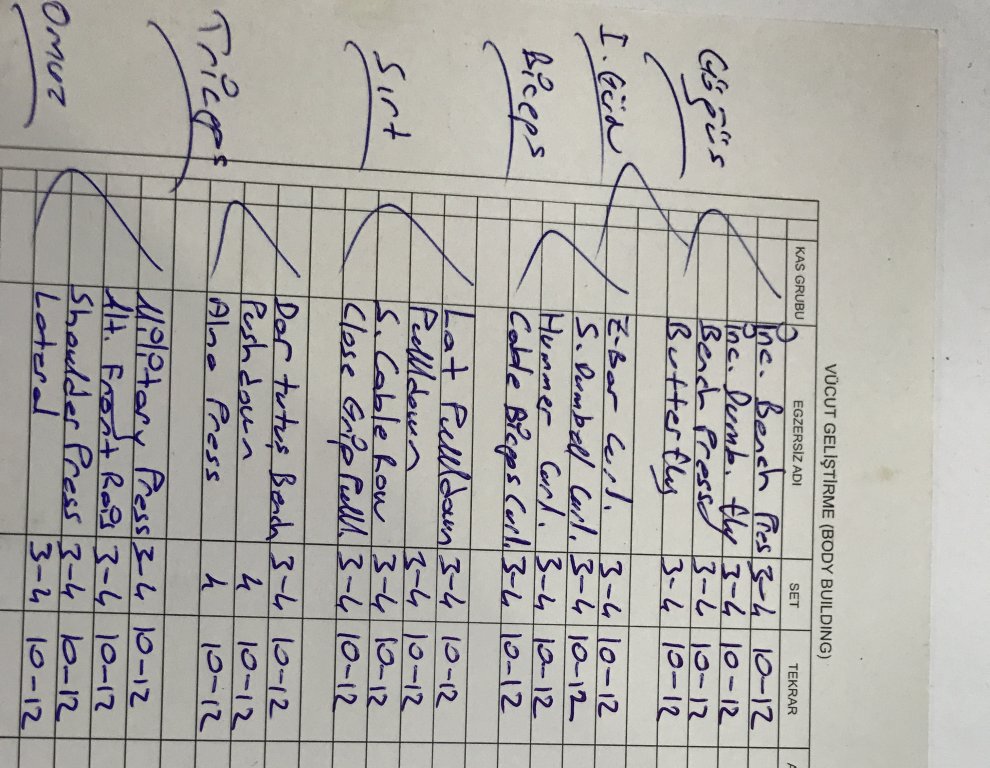 VÜCUT GELİŞTİRME (BODY BUILDING)
KAS GRUBU EGZERSİZ ADI SET TEKRAR
Göğüs
Inc. Bench Pres 3-4 10-12
Inc. Dumb. fly 3-4 10-12
Bench Press 3-4 10-12
Butterfly 3-4 10-12
I. Gün
Biceps
Z-Bar Curl. 3-4 10-12
S. Dumbell Curl. 3-4 10-12
Hummer Curl. 3-4 10-12
Cable Biceps Curl. 3-4 10-12
Sırt
Lat Pulldown 3-4 10-12
Pulldown 3-4 10-12
S. Cable Row 3-4 10-12
Close Grip Pull. 3-4 10-12
Triceps
Dar tutuş Bench 3-4 10-12
Pushdown 4 10-12
Alna Press 4 10-12
Omuz
Military Press 3-4 10-12
Alt. Front Rais 3-4 10-12
Shoulder Press 3-4 10-12
Lateral 3-4 10-12